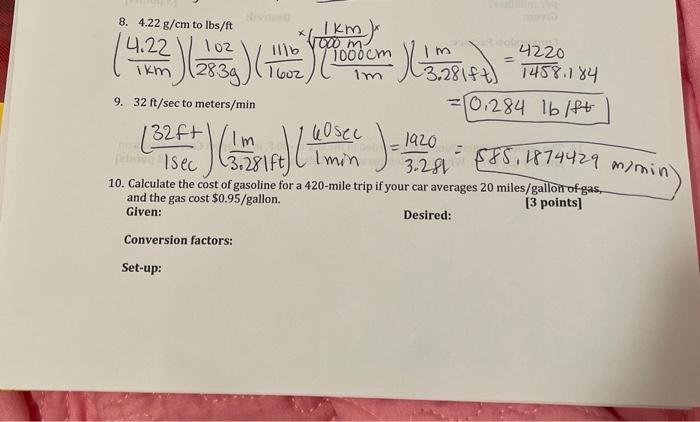 8. 4.22 g/cm to lbs/ft
(4.22 / 1km) (1oz / 28.3g) (1lb / 16oz) x (1km / 1000 m) x (1000cm / 1m) (1m / 3.281ft) = 4220 / 1458.184
= 0.284 lb/ft
9. 32 ft/sec to meters/min
(32ft / 1sec) (1m / 3.281ft) (60sec / 1min) = 1920 / 3.281 = 585.1874429 m/min
10. Calculate the cost of gasoline for a 420-mile trip if your car averages 20 miles/gallon of gas,
and the gas cost $0.95/gallon. [3 points]
Given: Desired:
Conversion factors:
Set-up: